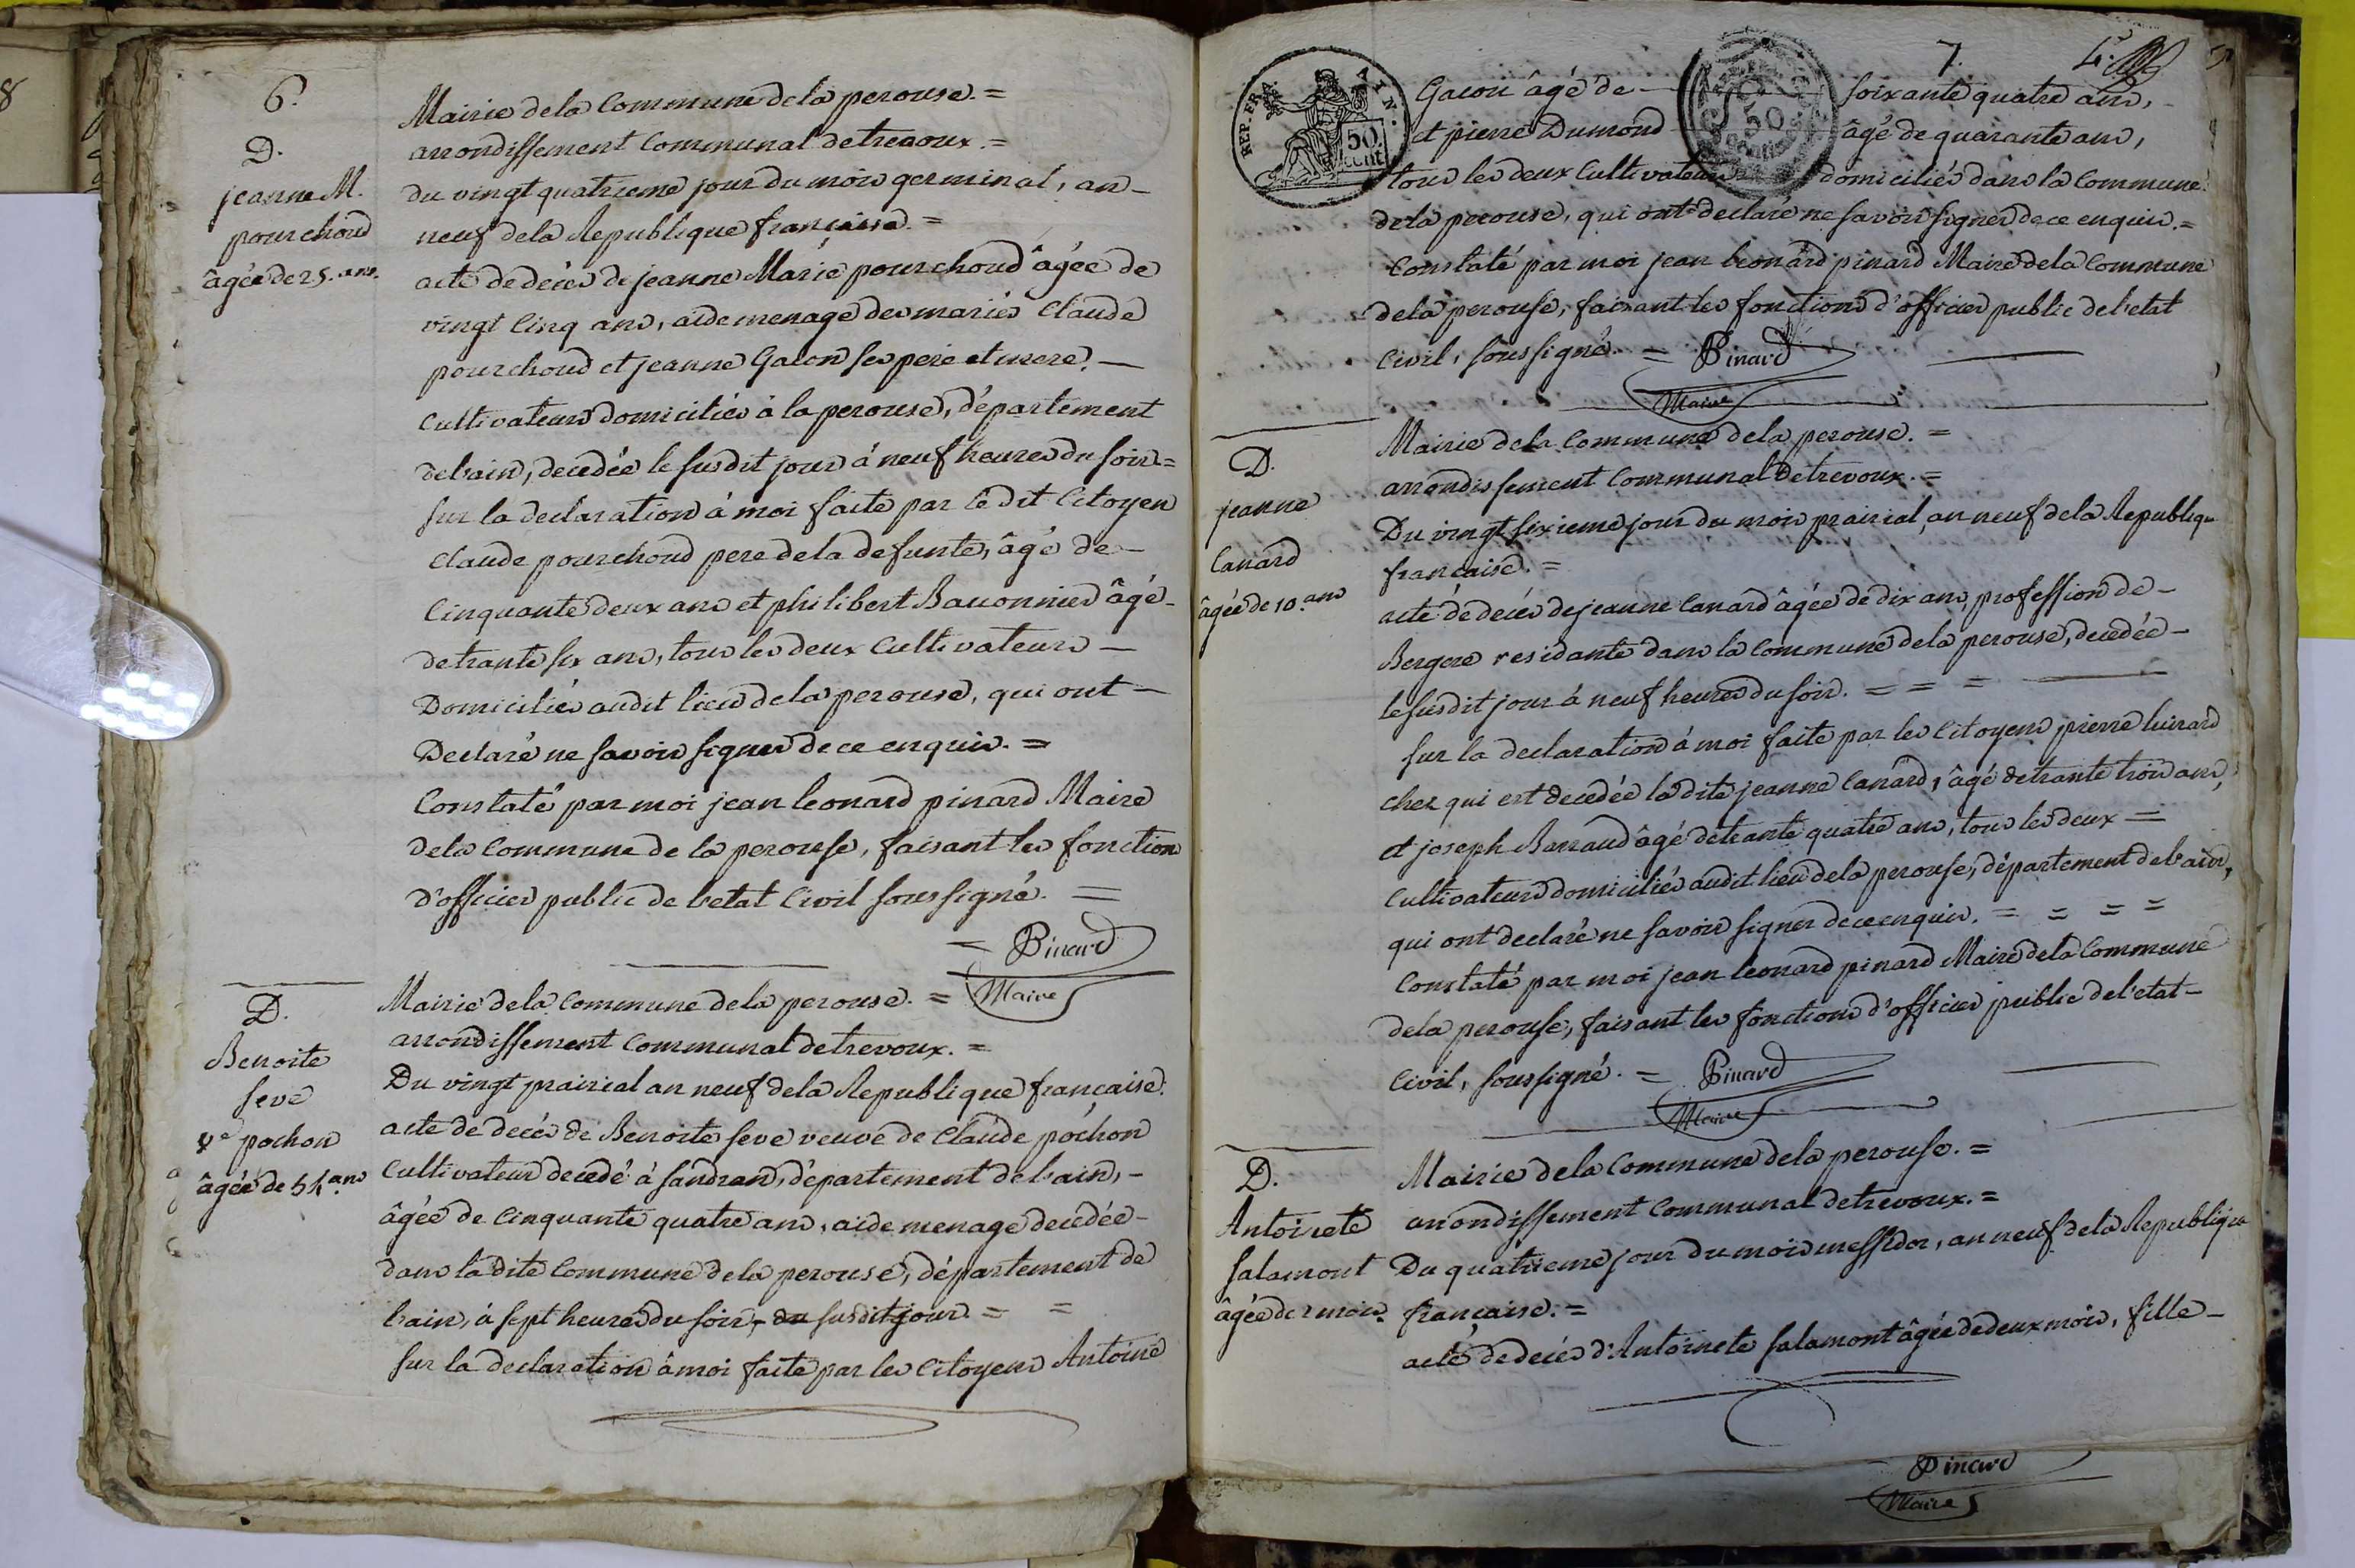 8
6.
D.
jeanne M.
pourchoud
âgée de 25. ans.
Mairie de la Commune de la perouse. =
arrondissement Communal de trevoux. =
du vingt quatrieme jour du mois germinal, an –
neuf de la Republique française. =
acte de decés de jeanne Marie pourchoud âgée de
vingt Cinq ans, aide menage des mariés Claude
pourchoud et jeanne Gacon ses pere et mere. —
Cultivateurs domiciliés à la perouse, département
de l'ain, decedée le susdit jour à neuf heures du soir. =
sur la declaration à moi faite par le dit Citoyen
Claude pourchoud pere de la defunte, âgé de –
Cinquante deux ans et philibert Bauonnier âgé –
de trante six ans, tous les deux Cultivateurs —
Domiciliés audit lieu de la perouse, qui ont —
Declaré ne savoir signer de ce enquis. =
Constaté par moi jean leonard pinard Maire
de la Commune de la perouse, faisant les fonction
d'officier public de l'etat Civil soussigné. =
= Pinard
Maire
D.
Benoite
seve
ve pochon
âgée de 54. ans
Mairie de la Commune de la perouse. =
arrondissement Communal de trevoux. =
Du vingt prairial an neuf de la Republique française.
acte de decés de Benoite seve veuve de Claude pochon
Cultivateur decedé à sandran, département de l'ain, –
âgée de Cinquante quatre ans, aide menage decedée –
dans la dite Commune de la perouse, département de
l'ain, à sept heures du soir, du susdit jour. = =
sur la declaration à moi faite par les Citoyens Antoine
7.
4.
REP. FRA.
AIN.
50. cent
50
Gacon âgé de — soixante quatre ans, –
et pierre Dumond âgé de quarante ans,
tous les deux Cultivateurs domiciliés dans la Commune
de la perouse, qui ont declaré ne savoir signer de ce enquis. =
Constaté par moi jean leonard pinard Maire de la Commune
de la perouse, faisant les fonctions d'officier public de l'etat
Civil, soussigné. = Pinard
Maire
D.
jeanne
Canard
âgée de 10. ans
Mairie de la Commune de la perouse. =
arrondissement Communal de trevoux. =
Du vingt sixieme jour du mois prairial, an neuf de la Republique
française. =
acte de decés de jeanne Canard âgée de dix ans, profession de –
Bergere residante dans la Commune de la perouse, decedée –
le susdit jour à neuf heures du soir. = = = —
sur la declaration à moi faite par les Citoyens pierre
chez qui est decedée la dite jeanne Canard, âgé de trante trois ans,
et joseph Barraud âgé de trante quatre ans, tous les deux =
Cultivateurs domiciliés audit lieu de la perouse, département de l'ain,
qui ont declaré ne savoir signer de ce enquis. = = = =
Constaté par moi jean leonard pinard Maire de la Commune
de la perouse, faisant les fonctions d'officier public de l'etat –
Civil, soussigné. = Pinard
Maire
D.
Antoinete
salamont
âgée de 2 mois.
Mairie de la Commune de la perouse. =
arrondissement Communal de trevoux. =
Du quatrieme jour du mois messidor, an neuf de la Republique
française. =
acte de decés d'Antoinete salamont âgée de deux mois, fille –
Pinard
Maire